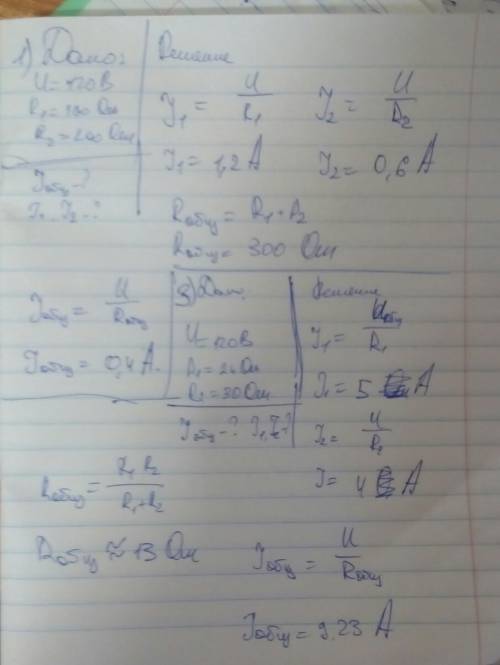 1) Дано:
U = 120 В
R₁ = 100 Ом
R₂ = 200 Ом
Iобщ - ?
I₁, I₂ - ?
Решение
I₁ = U/R₁ I₂ = U/R₂
I₁ = 1,2 А I₂ = 0,6 А
Rобщ = R₁ + R₂
Rобщ = 300 Ом
Iобщ = U/Rобщ
Iобщ = 0,4 А.
3) Дано:
U = 120 В
R₁ = 24 Ом
R₂ = 30 Ом
Iобщ - ? I₁, I₂ - ?
Решение
I₁ = Uобщ/R₁
I₁ = 5 А
I₂ = U/R₁
I = 4 А
Rобщ = R₁ R₂/R₁+R₂
Rобщ ≈ 13 Ом
Iобщ = U/Rобщ
Iобщ = 9.23 А